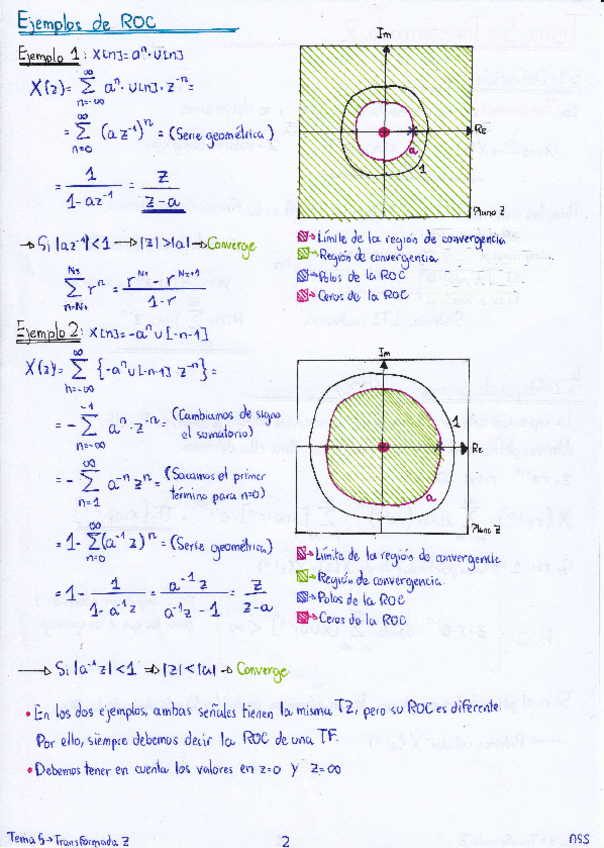 Ejemplos de ROC
Ejemplo 1: X[n]=aⁿ·U[n]
X(z)= ∑_{n=-∞}^{∞} aⁿ·U[n]·z⁻ⁿ=
= ∑_{n=0}^{∞} (az⁻¹)ⁿ = (Serie geométrica)
= 1/(1-az⁻¹) = z/(z-a)
→ Si |az⁻¹|<1 → |z|>|a| → Converge
∑_{n=N₁}^{N₂} rⁿ = (r^{N₁} - r^{N₂+1})/(1-r)
Im
Re
a
1
Plano Z
→ Límite de la región de convergencia
→ Región de convergencia
→ Polos de la ROC
→ Ceros de la ROC
Ejemplo 2: X[n]=-aⁿU[-n-1]
X(z)= ∑_{n=-∞}^{∞} {-aⁿU[-n-1]·z⁻ⁿ}=
= -∑_{n=-∞}^{-1} aⁿ·z⁻ⁿ= (Cambiamos de signo
el sumatorio)
= -∑_{n=1}^{∞} a⁻ⁿzⁿ= (Sacamos el primer
término para n=0)
= 1-∑_{n=0}^{∞}(a⁻¹z)ⁿ= (Serie geométrica)
= 1- 1/(1-a⁻¹z) = a⁻¹z/(a⁻¹z-1) = z/(z-a)
Im
1
Re
a
Plano Z
→ Límite de la región de convergencia
→ Región de convergencia.
→ Polos de la ROC
→ Ceros de la ROC
→ Si |a⁻¹z|<1 ⇒ |z|<|a| → Converge
• En los dos ejemplos, ambas señales tienen la misma TZ, pero su ROC es diferente.
Por ello, siempre debemos decir la ROC de una TF.
• Debemos tener en cuenta los valores en z=0 y z=∞
Tema 5→Transformada Z
2
nss